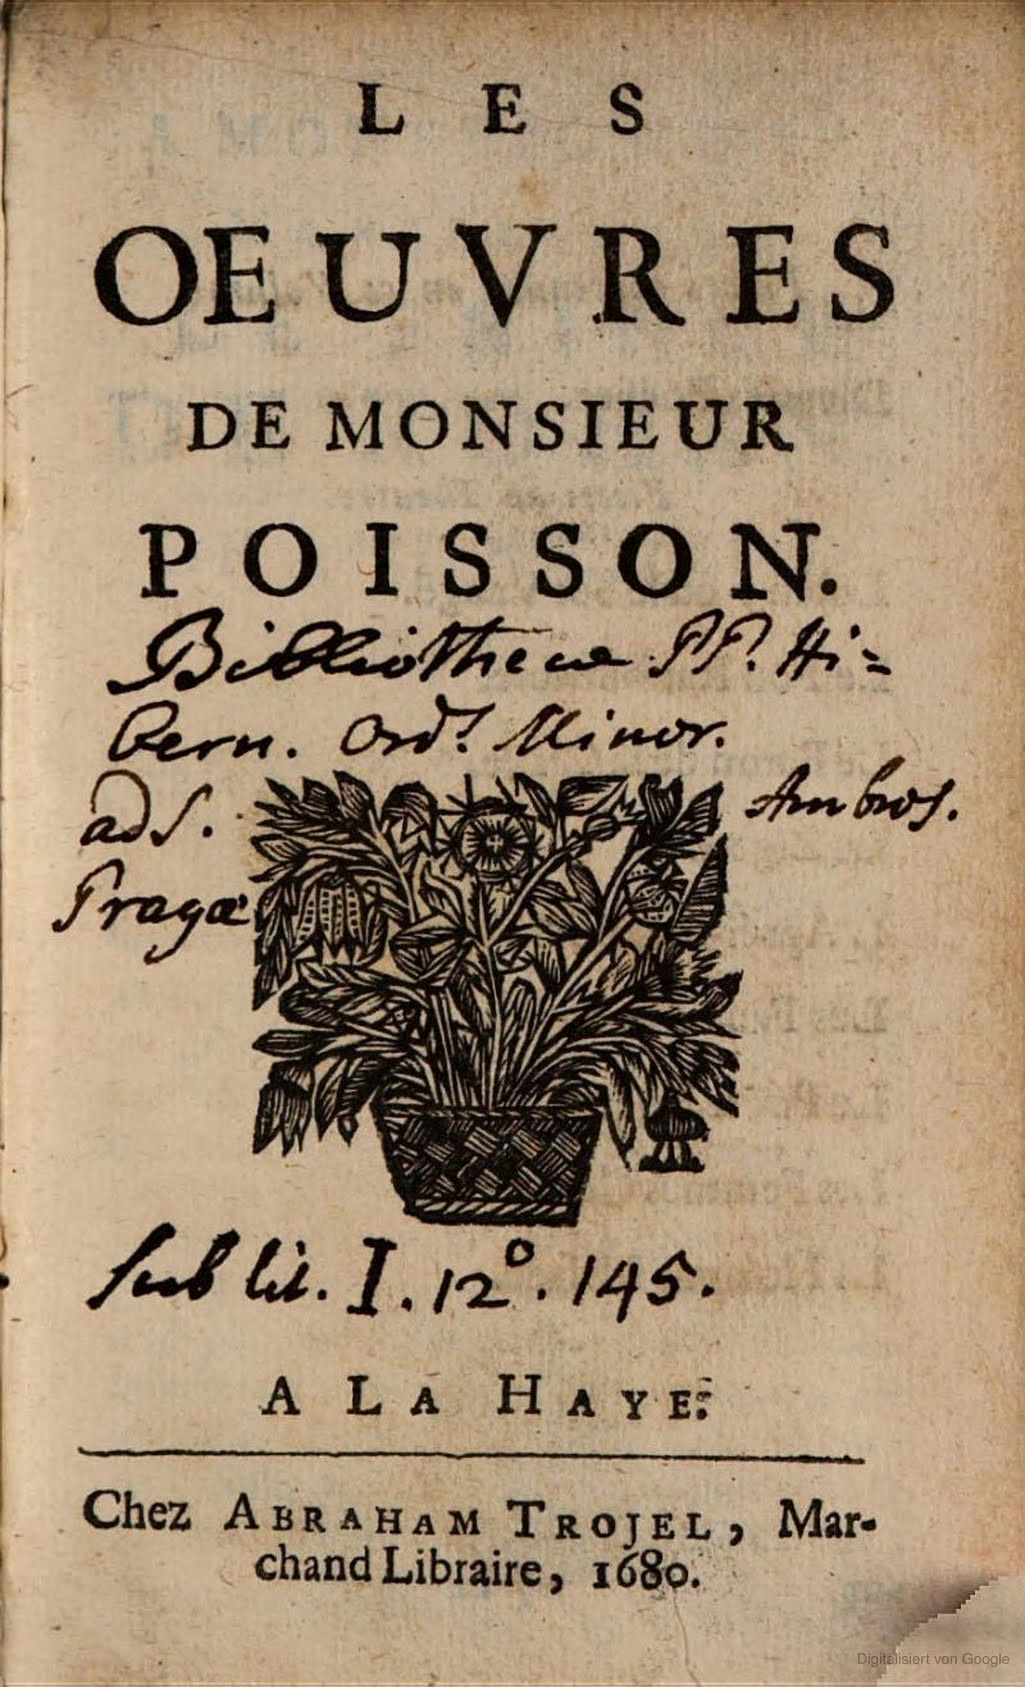 LES
OEUVRES
DE MONSIEUR
POISSON.
Bibliothecæ PP. Hi-
bern. Ord! Minor.
ad S. Ambros.
Pragæ
Sub lit. I. 12°. 145.
A LA HAYE.
Chez ABRAHAM TROJEL, Mar-
chand Libraire, 1680.
Digitalisiert von Google